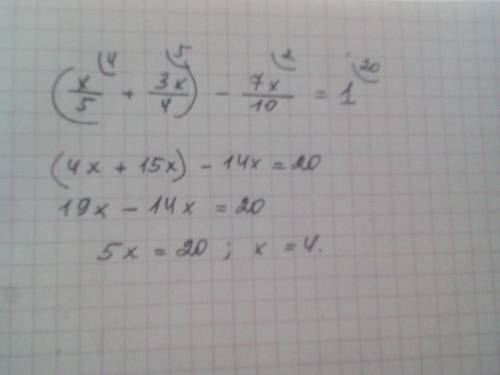 (x/5 ⁽⁴ + 3x/4 ⁽⁵) - 7x/10 ⁽² = 1 ⁽²⁰
(4x + 15x) - 14x = 20
19x - 14x = 20
5x = 20 ; x = 4.